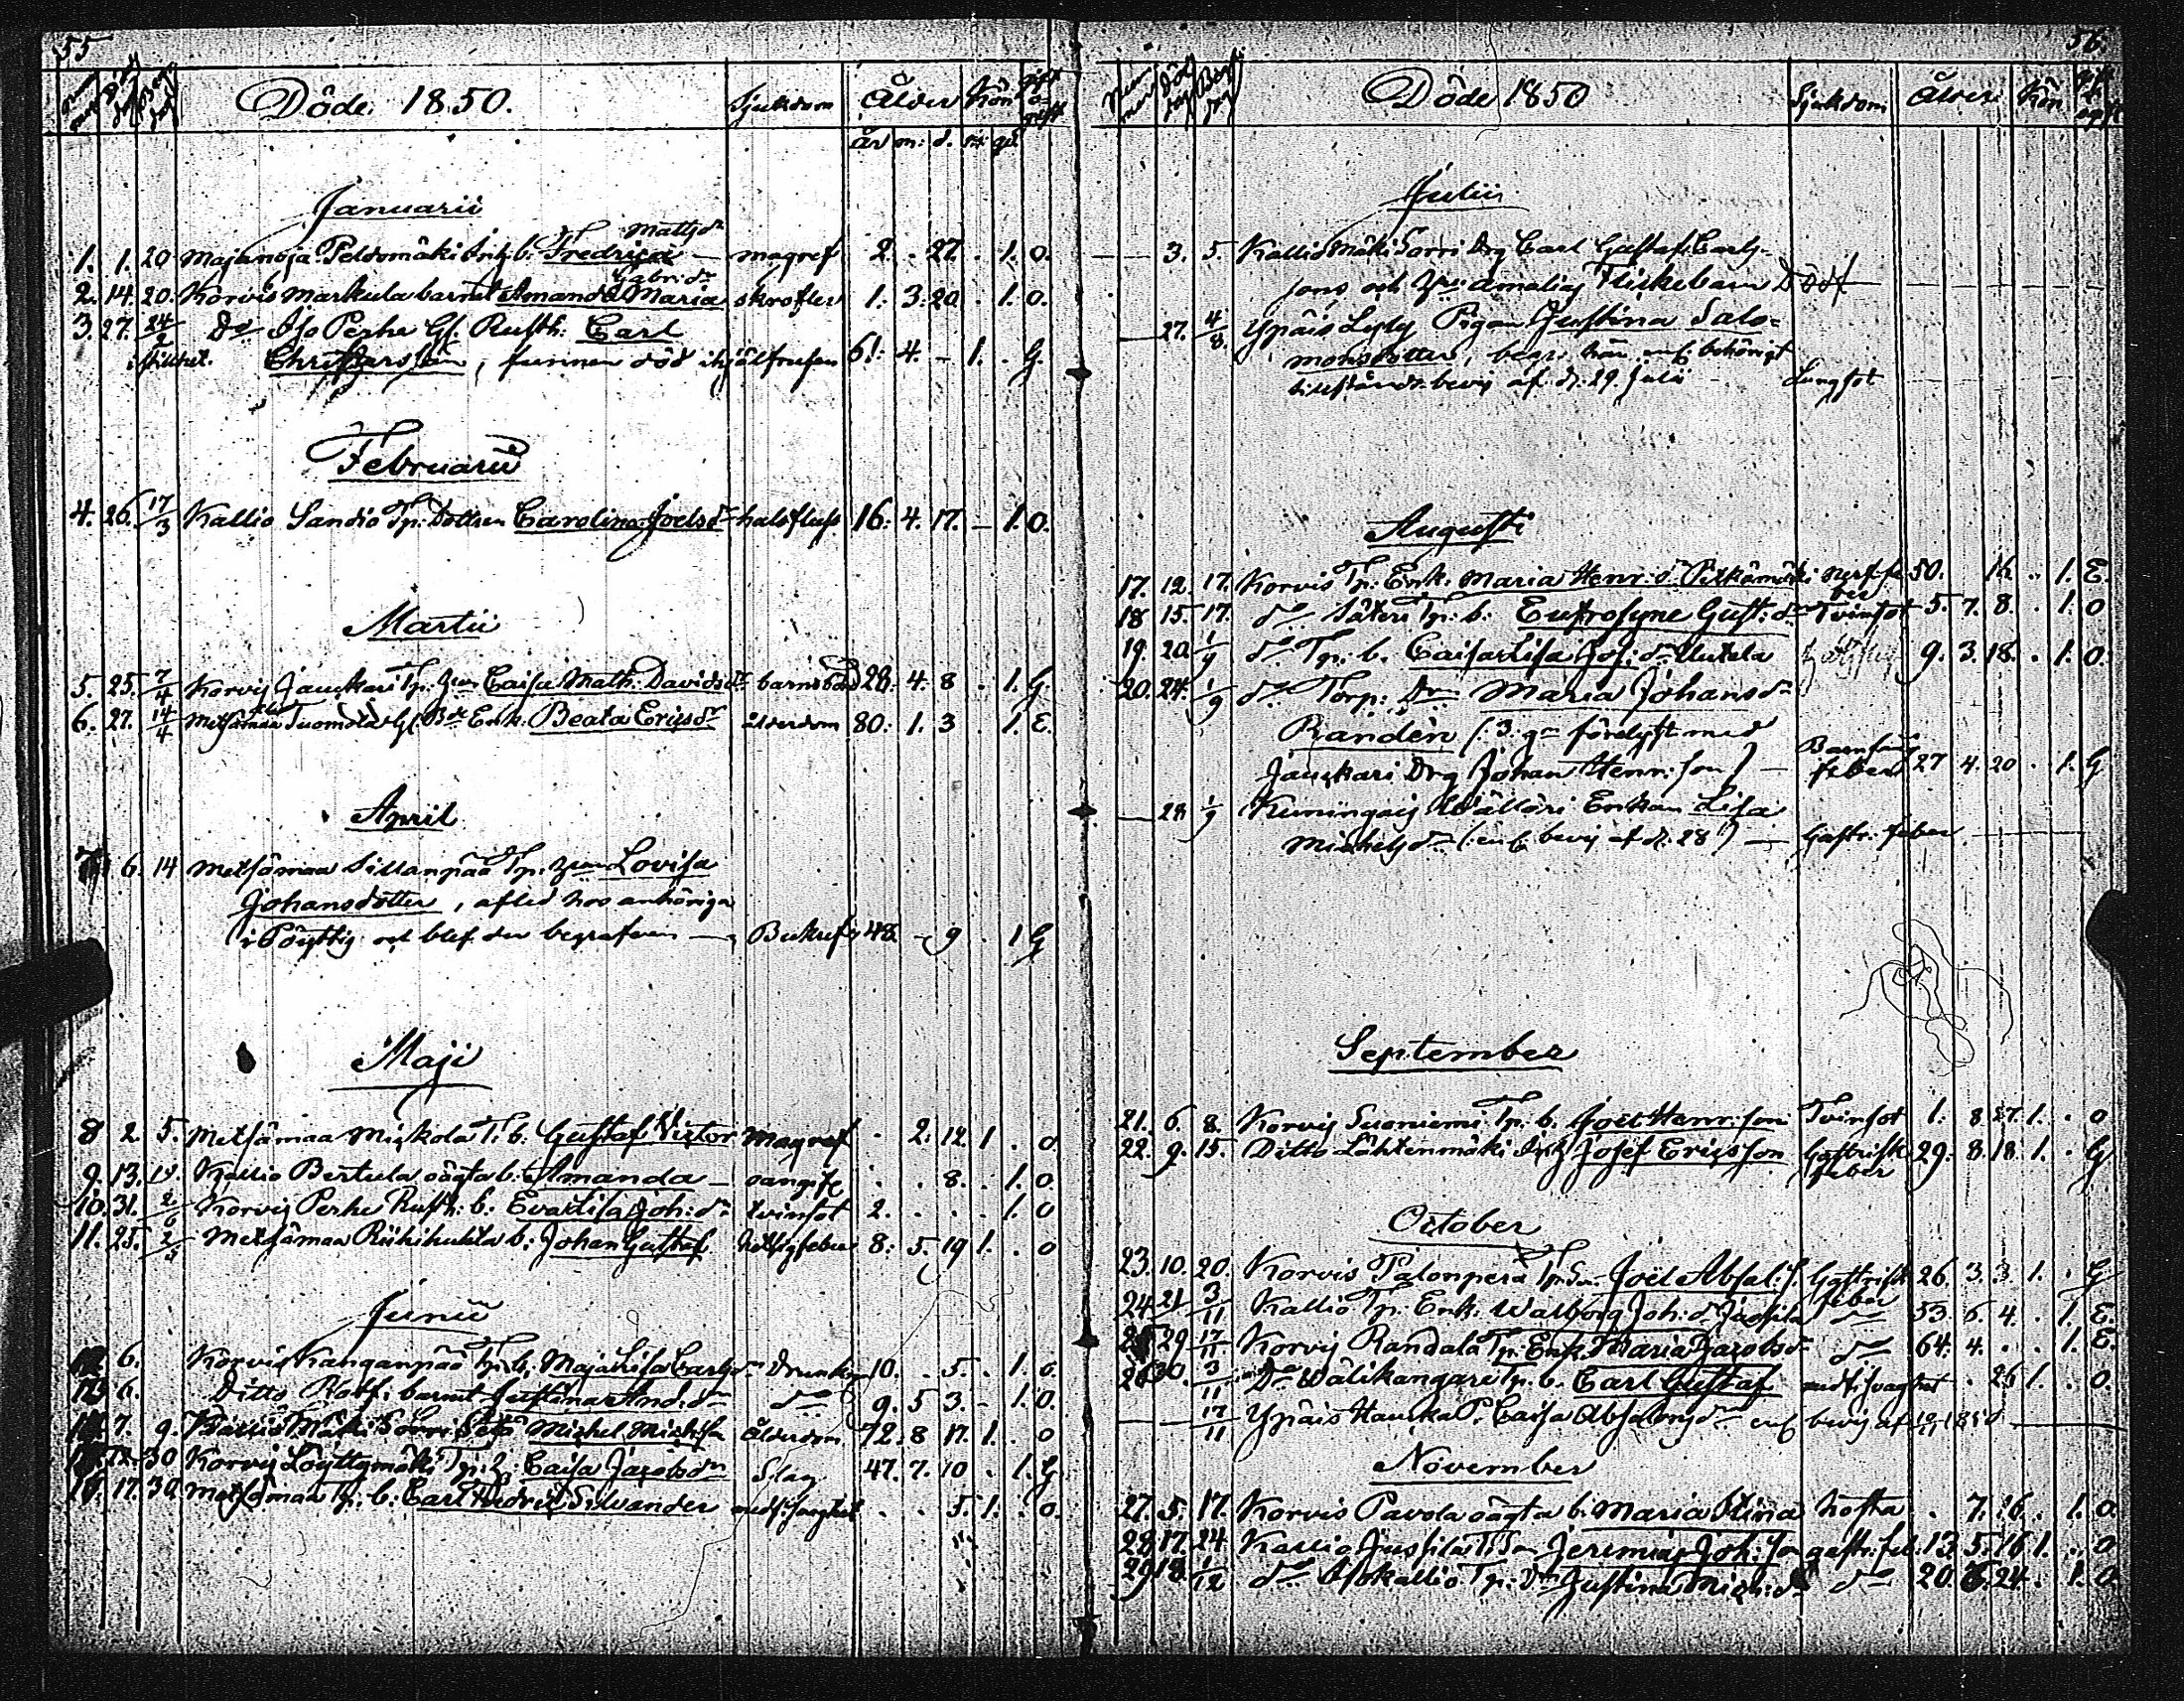 55
Num mer Död dag Begr. dag Döde 1850. Sjukdom Ålder Kön gift o- gift
år m: d. m: qk
Januarii
Mattsdr
1. 1. 20 Majanoja Peldomäki Inh. b. Fredrica — magref 2. . 27. . 1. O.
Gabr: dr
2. 14. 20. Korvis Markula barnet Amanda Maria skrofler 1. 3. 20 . 1. O.
3. 27. 24/2 Do Iso Perhe Gl. Rusth: Carl
Christersson, funnen död ihjälfrusen 61. 4. – 1. . G
Februarii
4. 26. 17/3 Kallio Sandio Tp: Dottren Carolina Joelsdr halsfluss 16. 4. 17. – 1. O.
Martii
5. 25. 7/4 Korvis Jauckari Tp. Caisa Math. Davidsdr barnsbörd 28. 4. 8 . 1. G.
6. 27. 14/4 Metsämaa Tuomola Gl. Enk. Beata Ericsdr ålderdom 80. 1. 3 . 1. E.
April
7 6. 14 Metsämaa Sillanpää Tp. Lovisa
Johansdotter, afled hos anhöriga
i Pöyttis och blef der begrafven — Bukref 48. – 9 . 1 G
Maji
8 2. 5. Metsämaa Miskola T. b. Gustaf Victor Magref . 2. 12. 1 . O
9. 13. Kallio Bertula oägta b. Amanda — oangife . . 8. . 1. O
10. 31. 2/6 Korvis Perhe Rusth: b. Eva Lisa Joh: dr tvinsot 2. . . . 1. O
11. 25. 2/5 Metsämaa Riihihuhta b: Johan Gustaf hetsig feber 8: 5. 19 1. . O
Junii
6. Korvis Kanganpää Tp. b. Maja Lisa Carlsdr Drunkn. 10. . 5. . 1. O.
6. Ditto barnet Justina And: dr do 9. 5 3. – 1. O.
7. 9. Kallio Mäki Sorri Michel Michelss. ålderdom 72. 8 17. 1. . O
12. 30 Korvis Löyttymäki Tp. Caisa Jacobsdr Slag 47. 7. 10 . 1. G
17. 30. Metsämaa Tp. b. Carl Fredric Silvander medf. svaghet . . 5. 1. . O.
56.
Num mer Död dag Begr. dag Döde 1850 Sjukdom Ålder Kön gift o- gift
Julii
— 3. 5. Kallio Mäki Sorri Drg Carl Gustaf Carls-
sons och Amalias Flickebarn Dödf —
— 27. 4/8 Ypäis Lyly Pigan Justina Salo-
monsdotter, begr. här behörigt
tillstånds bevis af d. 29 Julii — Lungsot
Augusti
17. 12. 17. Korvis Tp: Enk. Maria Henr: d. Pitkämäki Nerffe ber 50. 16 . . 1. E.
18 15. 17. do Säteri Tp: b. Eufrosyne Gust: dr Tvinsot 5. 7. 8. . 1. O
19. 20. 1/9 do Tp: b. Caisa Lisa Jos: dr Uutela 9. 3. 18. . 1. O.
20. 24. 1/9 do Torp: Maria Johansdr
Randèn (: 3: gr förelyst med
Jauckari Drg Johan Henr: son :) — Barnsängs feber 27 4. 20 . 1. G
— 28 1/9 Kuningais Wälläri Enkan Lisa
Michelsdr (: enl. bevis af d: 28 :) — Gastr. feber —
September
21. 6. 8. Korvis Suoniemi Tp. b. Joel Henr: son Tvinsot 1. 8 27. 1. . O
22. 9. 15. Ditto Lähtenmäki Inh. Josef Ericsson Gastrisk feber 29. 8. 18. 1. . G
October
23. 10. 20. Korvis Palonperä Tp. Joël Absal: s. Gastrisk feber 26. 3. 3 1. . G
24. 21 3/11 Kallio Tp: Enk. Walborg Joh: dr Jussila do 53. 6. 4. . 1. E.
25 29. 17/11 Korvis Randala Tp: Enk. Maria Jacobsdr do 64. 4. . . 1. E.
26 30. 3/11 Do Wälikangari Tp. b. Carl Gustaf medf. svaghet . . 26 1. . O.
— 17/11 Ypäis Hauka P. Caisa Absalonsdr enl. bevis af 1850 —
November
27. 5. 17. Korvis Pavola oägta b. Maria Stina Hosta . 7. 16. . 1. O
28 17. 24 Kallio Jussila T. Son Jeremias Joh: son gastr. feb. 13 5. 16 1. . O
29 18. 1/12 do Isokallio Tp: Justina Mich: dr do 20 6. 24. . 1. O.